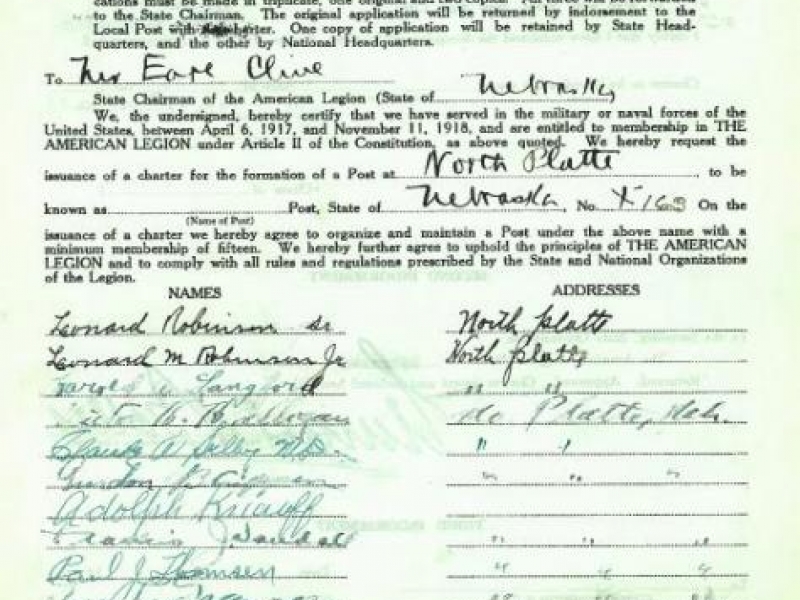 cations must be made in triplicate, one original and two copies. All
to the State Chairman. The original application will be returned by indorsement to the
Local Post with charter. One copy of application will be retained by State Head-
quarters, and the other by National Headquarters.
To Mr Earl Cline
State Chairman of the American Legion (State of Nebraska
We, the undersigned, hereby certify that we have served in the military or naval forces of the
United States, between April 6, 1917, and November 11, 1918, and are entitled to membership in THE
AMERICAN LEGION under Article II of the Constitution, as above quoted. We hereby request the
issuance of a charter for the formation of a Post at North Platte, to be
known as Post, State of Nebraska, No. 163 On the
(Name of Post)
issuance of a charter we hereby agree to organize and maintain a Post under the above name with a
minimum membership of fifteen. We hereby further agree to uphold the principles of THE AMERICAN
LEGION and to comply with all rules and regulations prescribed by the State and National Organizations
of the Legion.
NAMES ADDRESSES
Leonard Robinson Sr North Platte
Leonard M Robinson Jr North Platte
Langford " "
No Platte, Neb.
Claude A Selby M.D. " "
Gordon " " "
Adolph Knauff
Francis J " " "
Paul J Thomsen " " "